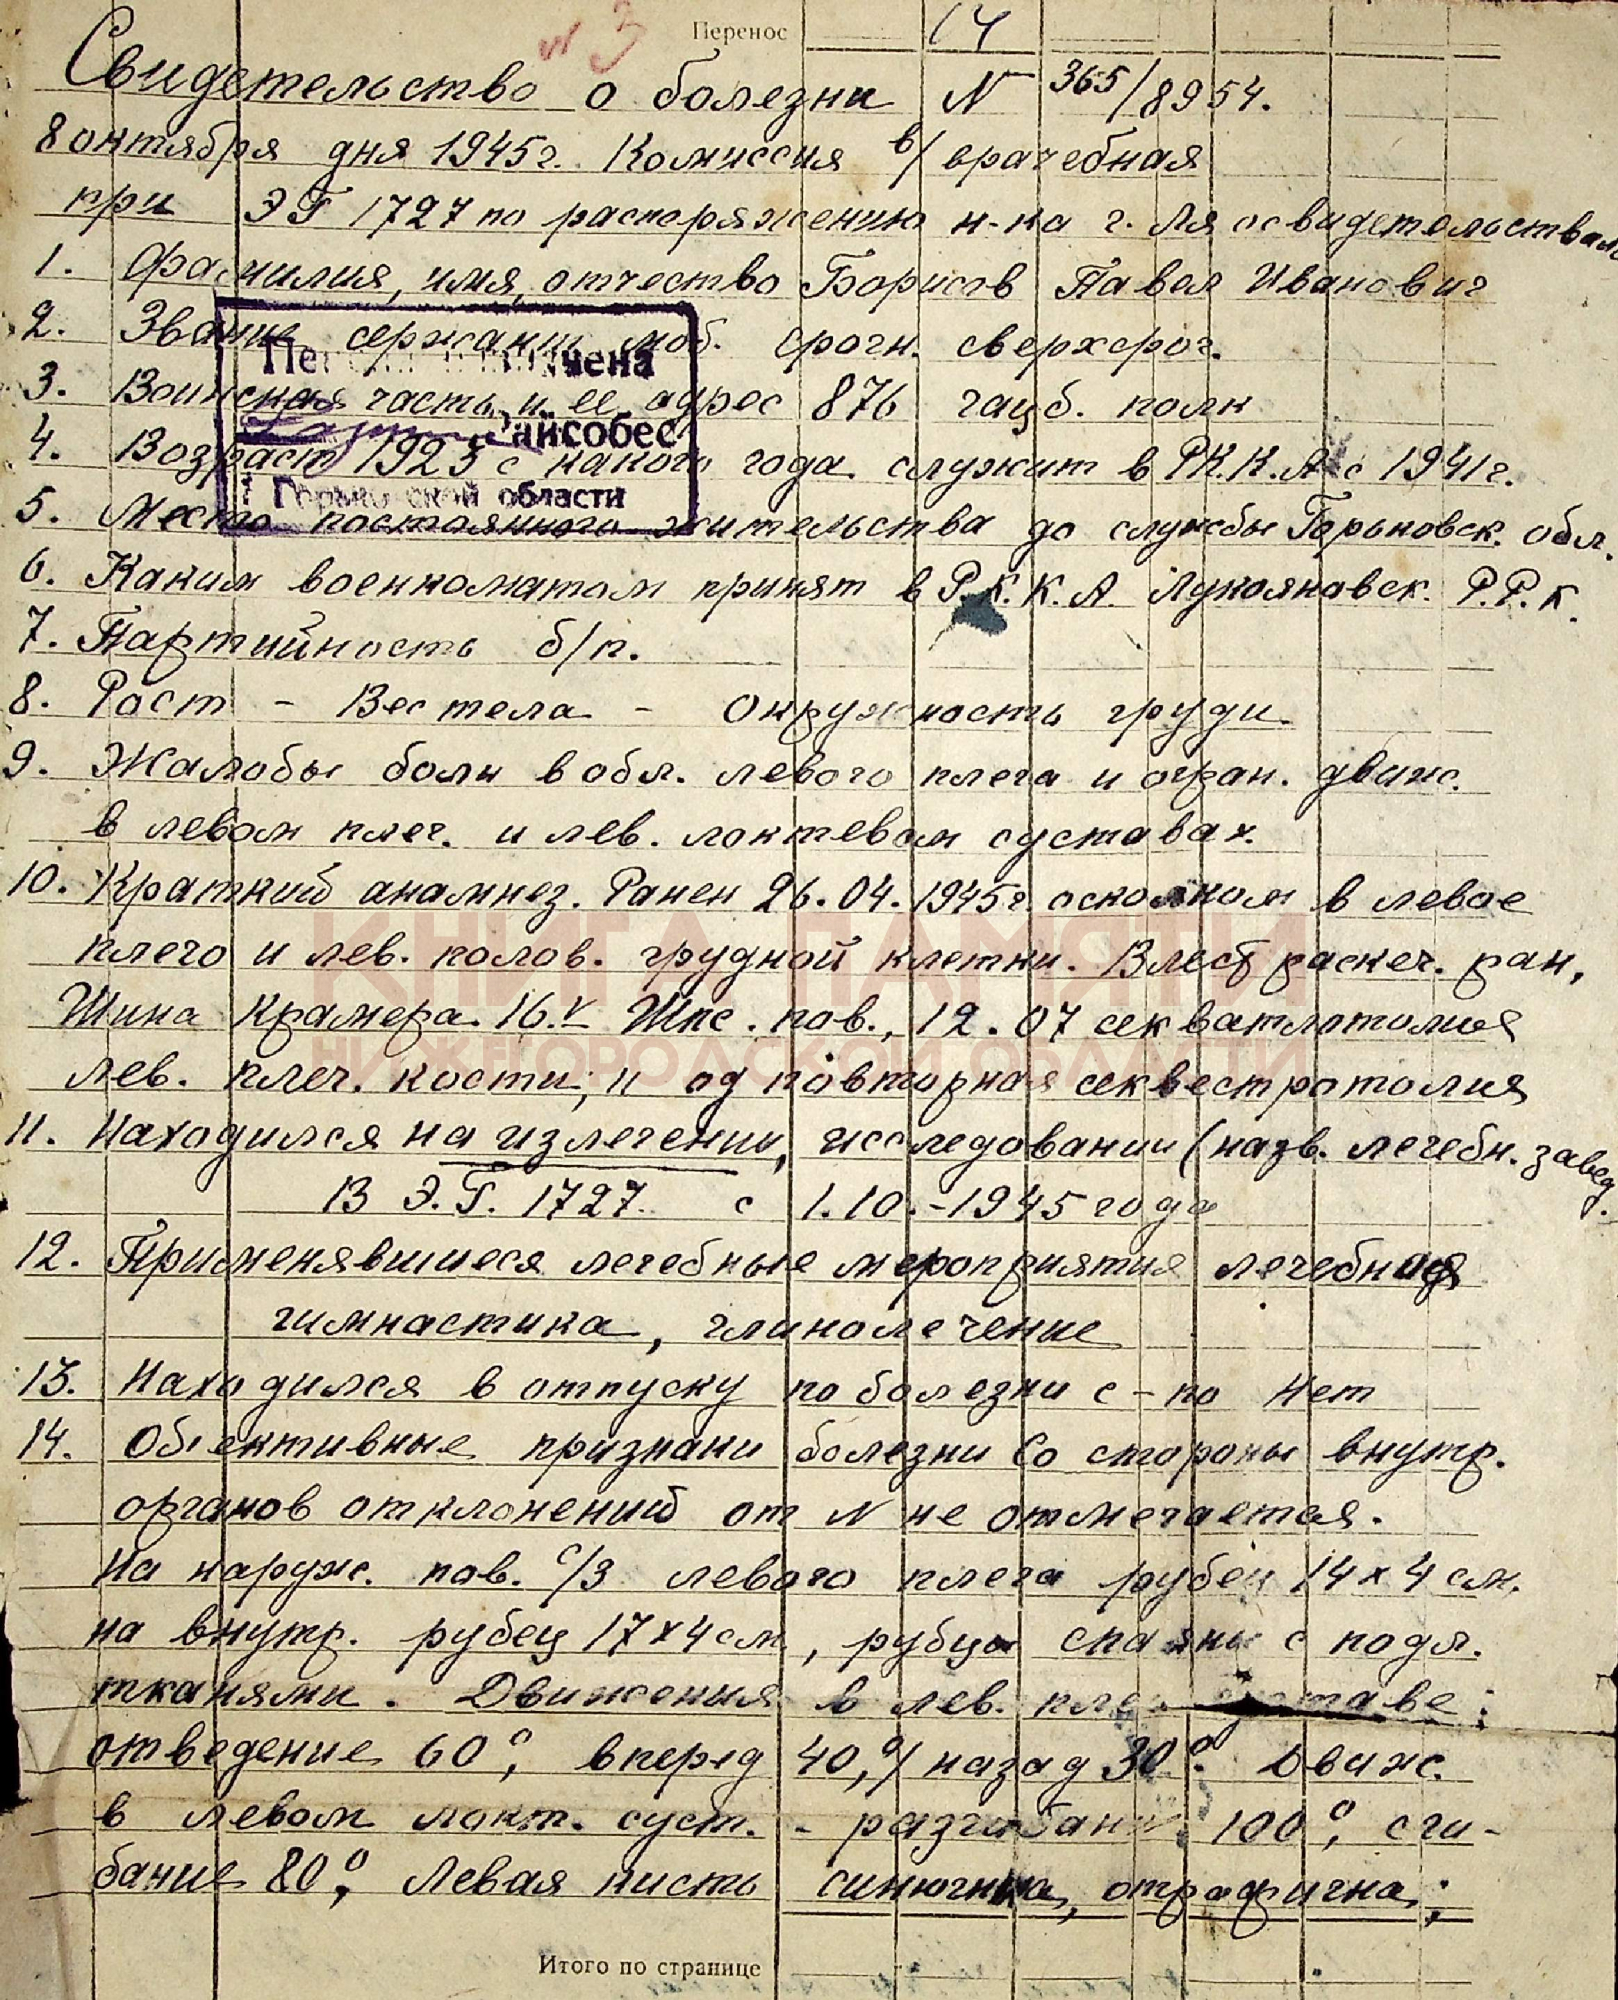 № 3
Перенос 14
Свидетельство о болезни N 365/8954.
8 октября дня 1945г. Комиссия в/врачебная
при ЭГ 1727 по распоряжению н-ка г-ля освидетельствован
1. Фамилия, имя, отчество Борисов Павел Иванович
2. Звание сержант моб. срочн. сверхсроч.
3. Воинская часть и ее адрес 876 гауб. полк
4. Возраст 1925 с какого года служит в Р.К.К.А с 1941г.
5. Место постоянного жительства до службы Горьковск. обл.
6. Каким военкоматом принят в Р.К.К.А. Лукояновск. Р.В.К.
7. Партийность б/п.
8. Рост - Вес тела - Окружность груди
9. Жалобы боли в обл. левого плеча и огран. движ.
в левом плеч. и лев. локтевом суставах.
10. Краткий анамнез. Ранен 26.04.1945г. осколком в левое
плечо и лев. полов. грудной клетки. В рассеч. ран,
Шина Крамера. 16.V Гипс. пов., 12.07
лев. плеч. кости, повторная секвестротомия
11. Находился на излечении, исследовании (назв. лечебн. завед.
В Э.Г. 1727. с 1.10.-1945 года
12. Применявшиеся лечебные мероприятия лечебная
гимнастика, глинолечение
13. Находился в отпуску по болезни с - по Нет
14. Обективные признаки болезни Со стороны внутр.
органов отклонений от N не отмечается.
На наруж. пов. с/3 левого плеча рубец 14х4 см.
на внутр. рубец 17х4 см, рубцы спаяны с подл.
тканями. Движения в лев. плеч суставе:
отведение 60°, вперед 40,°/ назад 30°. Движ.
в левом локт. суст. - разгибание 100°, сги-
бание 80°, Левая кисть синюшна, отрофична;
Итого по странице
чена
Райсобес
Горьковской области
КНИГА ПАМЯТИ
НИЖЕГОРОДСКОЙ ОБЛАСТИ